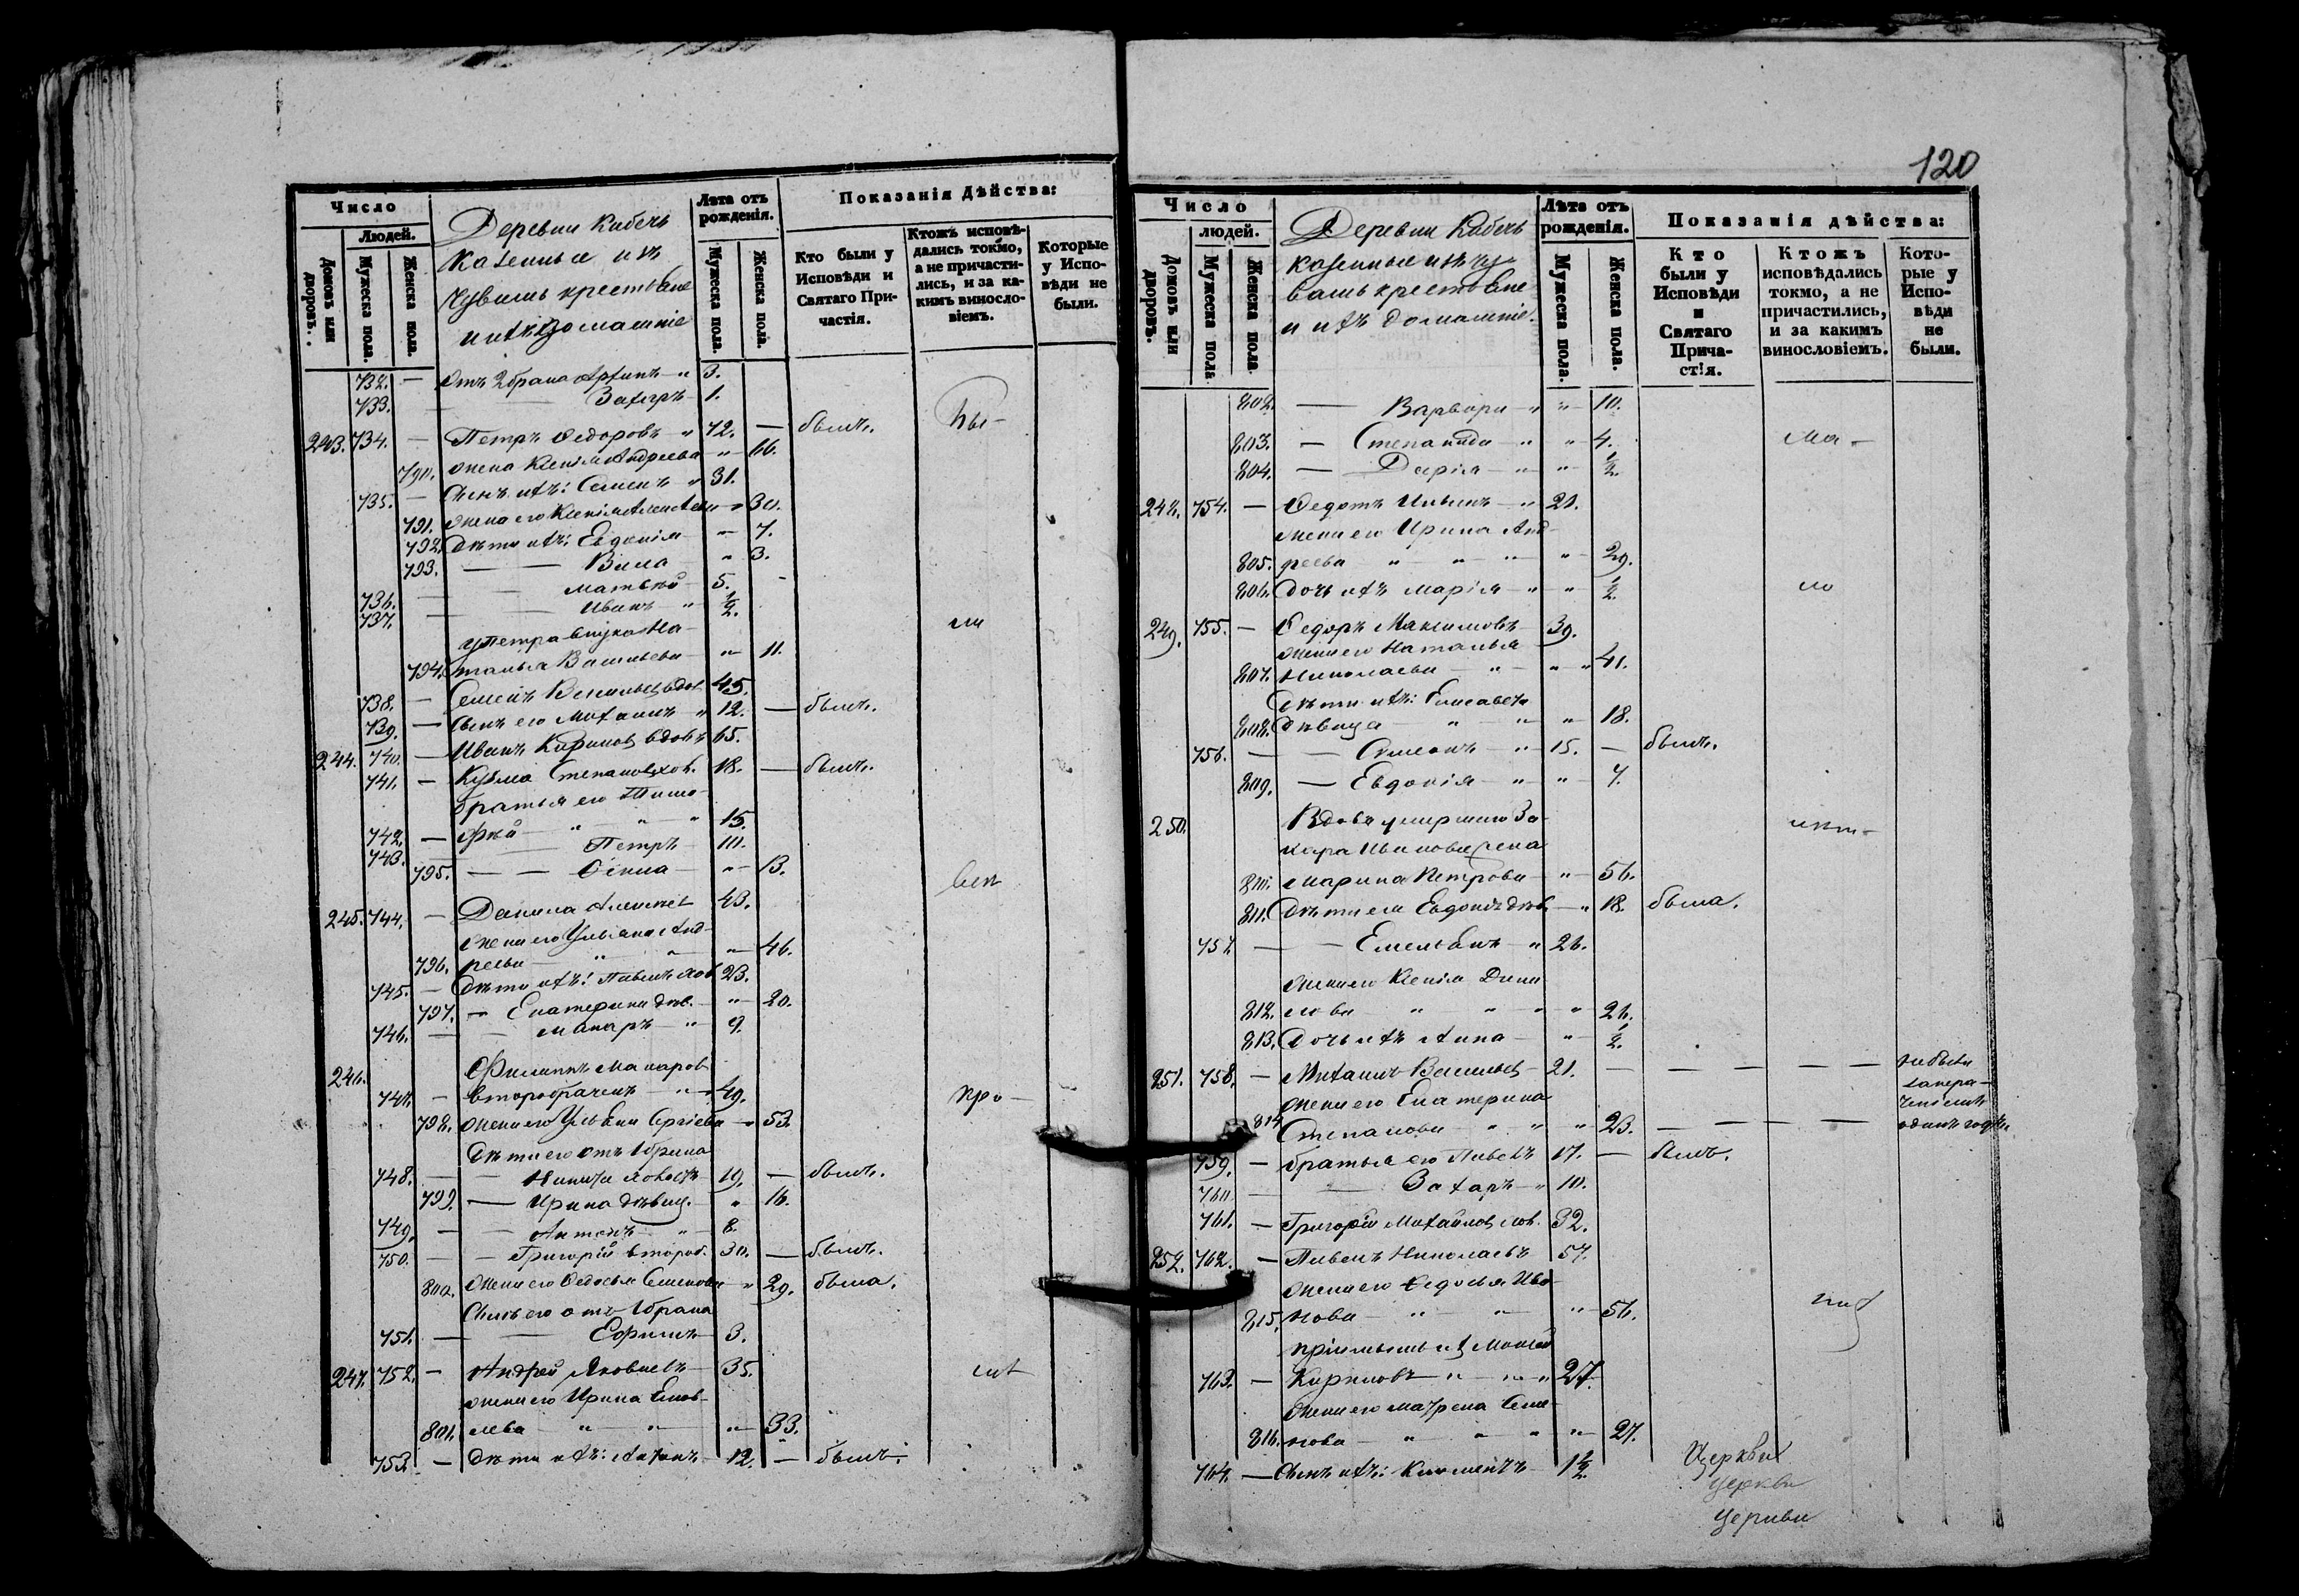 Число
Людей.
Домовъ или дворовъ.
Мужеска пола.
Женска пола.
Деревни Кибечь
казенные изъ
Чувашъ крестьяне
и ихъ домашніе
Лѣта отъ рожденія.
Мужеска пола.
Женска пола.
Показанія дѣйства:
Кто были у Исповѣди и Святаго Причастія.
Ктожъ исповѣдались токмо, а не причастились, и за какимъ винословіемъ.
Которые у Исповѣди не были.
732. — Отъ 2 брака 3.
733. Захаръ — 1.
243. 734. — Петръ Ѳедоровъ — " 72. — былъ.
790. жена Ксенія Андреева " — 66.
735. — Сынъ ихъ: Семенъ " 31.
791. жена его Ксенія — " 30.
792. дѣти ихъ: Евдокія — " — 7.
793. — — " 3.
736. — Матвѣй — 5.
737. — Иванъ — " ½.
у Петра внука На-
794. талья Васильева — " — 11.
738. — Семенъ Васильевъ вдов 45.
739. — Сынъ его Михаилъ " 12. — былъ.
244. 740. — Иванъ Кириловъ вдовъ 65.
741. — Кузьма Степановъ хол. 18. — былъ.
братья его Тимо-
742. — фѣй — " — " — " 15.
743. Петръ — 10.
795. — — — " — 13.
245. 744. — Данила Алексѣев 43.
жена его Ульяна Анд-
796. реева — " — " — 46.
745. — Дѣти ихъ: Павелъ хол 23.
797. — Екатерина дѣв. — " — 20.
746. — Макаръ — " — 9.
246. Филиппъ Макаров
747. — второбрачнъ — " — 49.
798. жена его Ульяна Сергіева — " 53.
Дѣти его отъ 1 брака
748. — Никита холостъ — 19. — былъ.
799. — Ирина дѣвиц. — " 16.
749. — Антонъ — " — 8.
750. — — Григорій второб. 30. — былъ.
800. жена его Ѳедосья Семенова — " 29. была.
Сынъ его отъ 1 брака
751. — Ефимъ — 3.
247. 752. — Андрей Яковлевъ — 35.
жена его Ирина
801. лева — " — " — " — 33.
753. — Дѣти ихъ: — 12. — былъ.
120
Число
людей.
Домовъ или дворовъ.
Мужеска пола
Женска пола.
Деревни Кибечь
казенные изъ чу-
вашъ крестьяне
и ихъ домашніе.
Лѣта отъ рожденія.
Мужеска пола.
Женска пола.
Показанія дѣйства:
Кто были у Исповѣди и Святаго Причастія.
Ктожъ исповѣдались токмо, а не причастились, и за какимъ винословіемъ.
Которые у Исповѣди не были.
802. — Варвара — " " — 10.
803. — Степанида — " " — 4.
804. — Дарія — " " — ½.
248. 754. — Ѳедотъ Ильинъ — " 21.
жена его Ирина Анд-
805. реева " — " — " " — 29.
806. дочь ихъ Марія — " " — ½.
249. 755. — Ѳедоръ Максимовъ 39.
жена его Наталья
807. Николаева — " — " " 41.
Дѣти ихъ: Елисавета
808. дѣвица — " — " " — 18.
756. — — Симеонъ — " 15. — былъ.
809. — Евдокія — " " — 7.
250. Вдова умершаго За-
хара Иванова жена
810. Марина Петрова — " — 56.
811. Дѣти ея Евдокія дѣв. — " 18. была.
757. — — Емельянъ — " 26.
жена его Ксенія Дани
812. лова " — " — " " — 26.
813. Дочь ихъ Анна — " — ½.
251. 758. — Михаилъ Васильев — 21. — — — — — не были
жена его Екатерина
814 Степанова — " — " " — 23. — — — —
759. — братья его Павелъ 17. — былъ.
760 — Захаръ — " 10.
761. — Григорій Михайлов хол. 32.
252. 762. — Павелъ Николаевъ 57.
жена его Ѳедосья Ива-
815. нова — " — " " — 56.
пріемышъ их Моисей
763. — Кириловъ — " — " — " 27.
жена его Матрена Семе-
816. нова — " — " — " " — 27.
764. — Сынъ ихъ: Климентъ — 1½.
Церкви
церкви
церкви